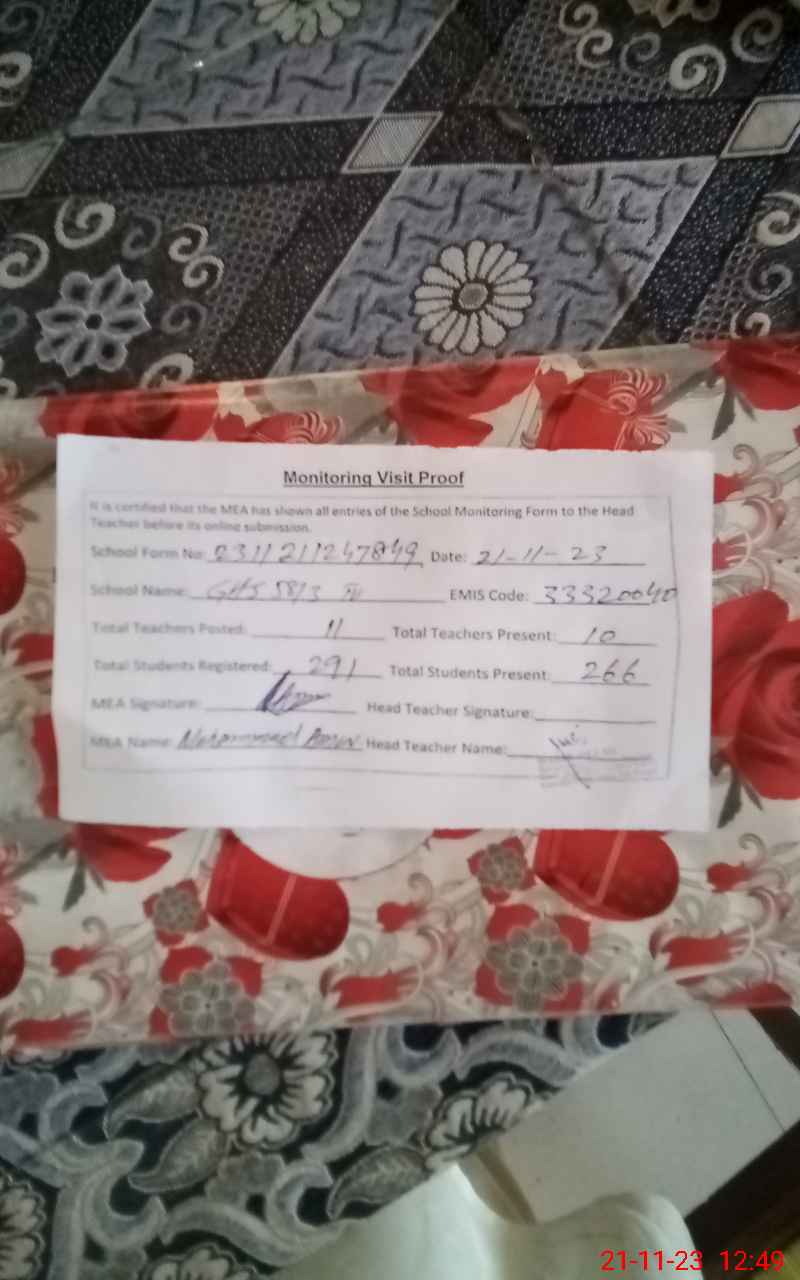 Monitoring Visit Proof
It is certified that the MEA has shown all entries of the School Monitoring Form to the Head
Teacher before its online submission.
School Form No: 2311211247849 Date: 21-11-23
School Name: GHS 58/3 EMIS Code: 33320040
Total Teachers Posted: 11 Total Teachers Present: 10
Total Students Registered: 291 Total Students Present: 266
MEA Signature: Head Teacher Signature:
MEA Name: Muhammad Head Teacher Name:
21-11-23 12:49